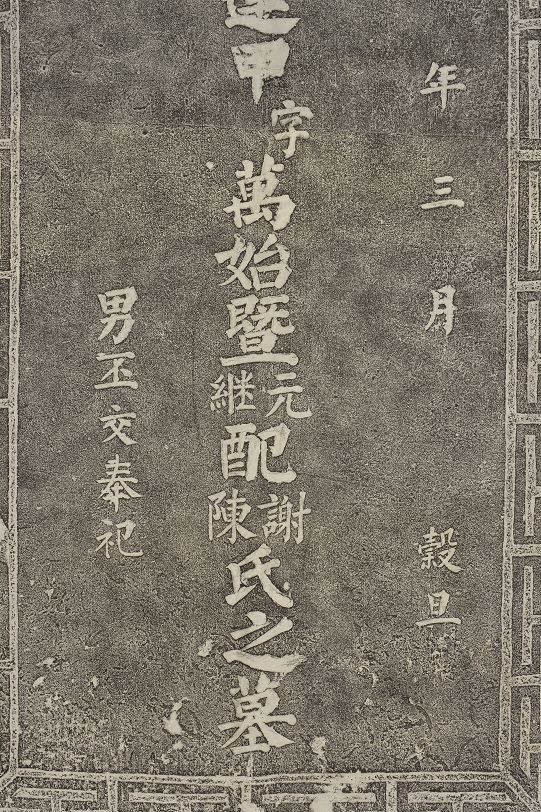 年三月 穀旦
甲字萬始暨元継配謝陳氏之墓
男丕文奉祀